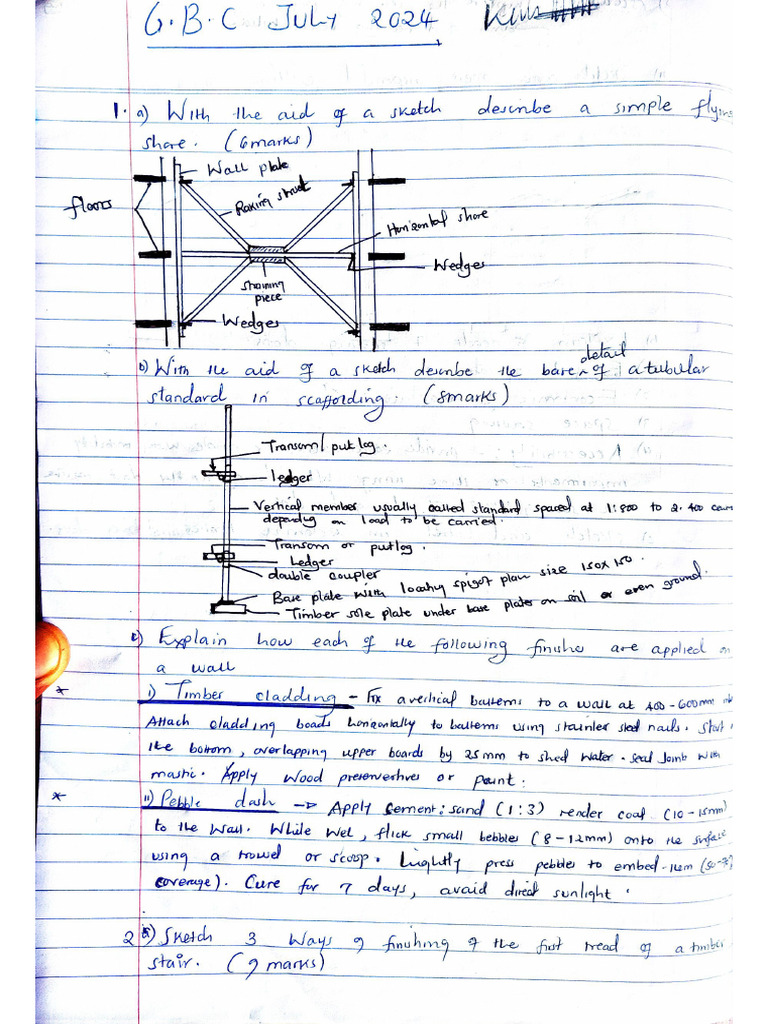 G.B.C JULY 2024
1. a) With the aid of a sketch describe a simple flying
shore. (6marks)
Wall plate
floors
Raking strut
Horizontal shore
Wedges
straining
piece
Wedges
b) With the aid of a sketch describe the base detail of a tubular
standard in scaffolding. (8marks)
Transom/putlog.
ledger
Vertical member usually called standard spaced at 1:800 to 2.400
depending on load to be carried.
Transom or putlog.
Ledger
double coupler
Base plate with locating spigot plan size 150x150.
Timber sole plate under base plates on soil or even ground.
c) Explain how each of the following finishes are applied on
a wall
* i) Timber cladding - Fix a vertical battens to a wall at 400-600mm
Attach cladding boads horizontally to battens using stainless steel nails. Start
the bottom, overlapping upper boards by 25mm to shed water. seal joints with
mastic. Apply wood preservatives or paint.
* ii) Pebble dash → Apply cement:sand (1:3) render coat (10-15mm)
to the wall. While wet, flick small bebbles (8-12mm) onto the surface
using a trowel or scoop. Lightly press pebbles to embed them
coverage). Cure for 7 days, avoid direct sunlight.
2 a) Sketch 3 ways of finishing of the first tread of a timber
stair. (9 marks)